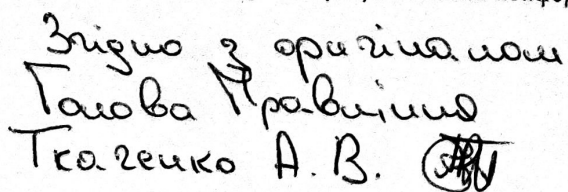 Згідно з оригіналом
Голова Правління
Ткаченко А. В.